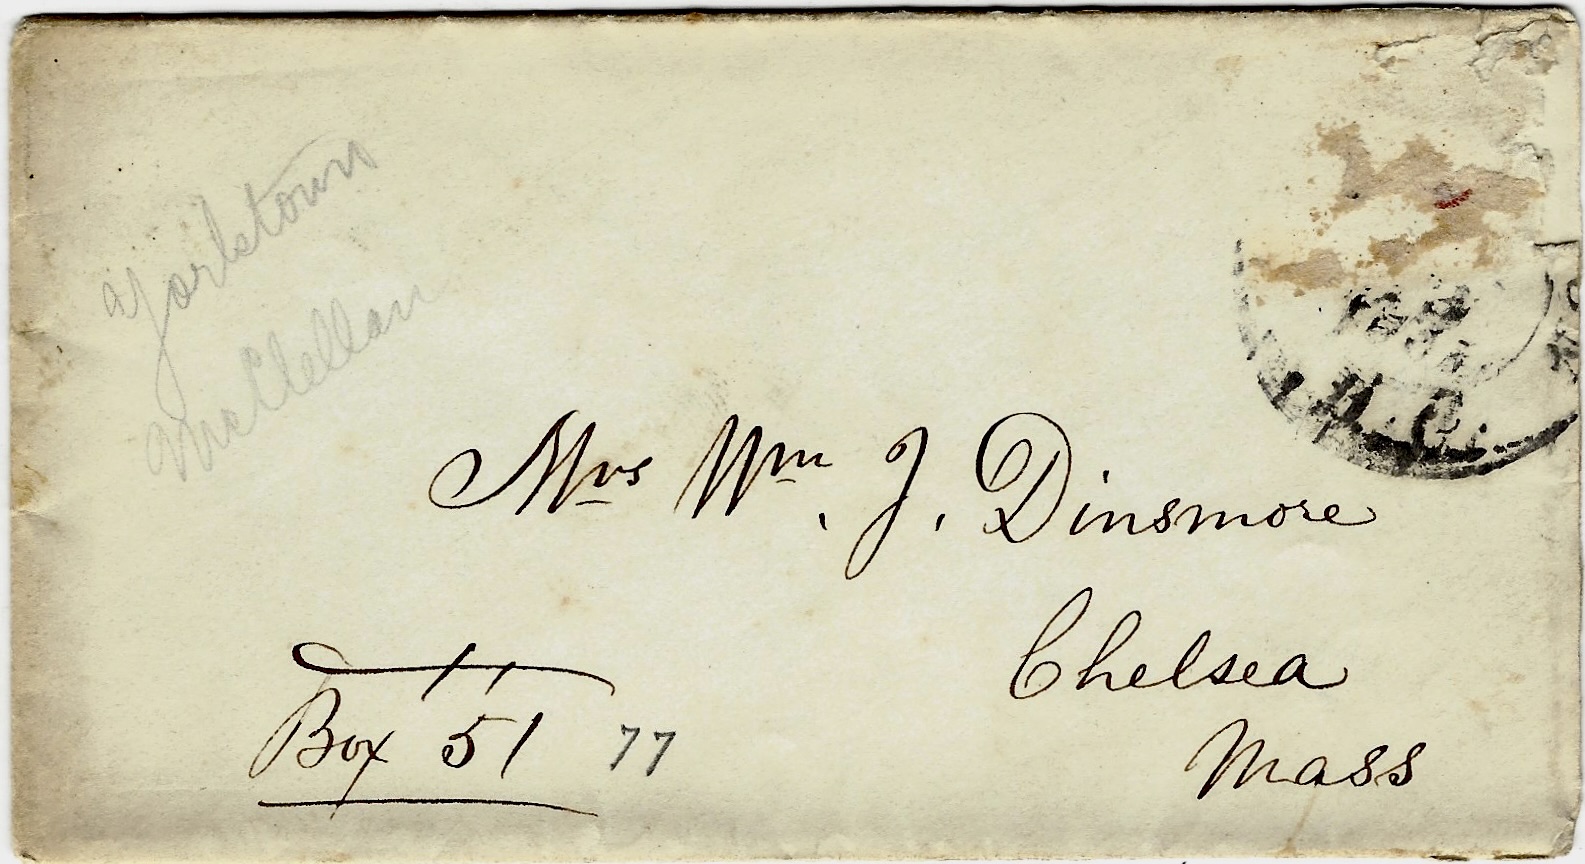 Yorktown
McClellan
Mrs Wm. J. Dinsmore
Chelsea
Mass
Box 51
77